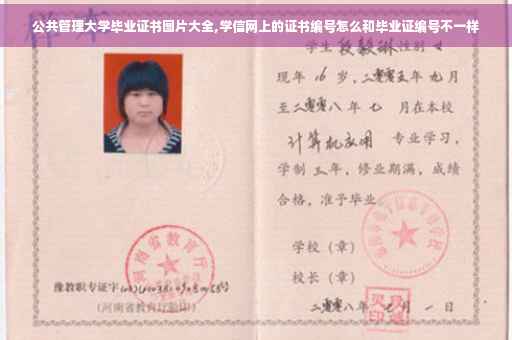 公共管理大学毕业证书图片大全,学信网上的证书编号怎么和毕业证编号不一样
学生段毅琳性别女
现年16岁，二零零五年九月
至二零零八年七月在本校
计算机应用专业学习，
学制三年，修业期满，成绩
合格，准予毕业。
学校（章）
校长（章）
二零零八年七月一日
河南省教育厅
豫教职专证字
(河南省教育厅验印)